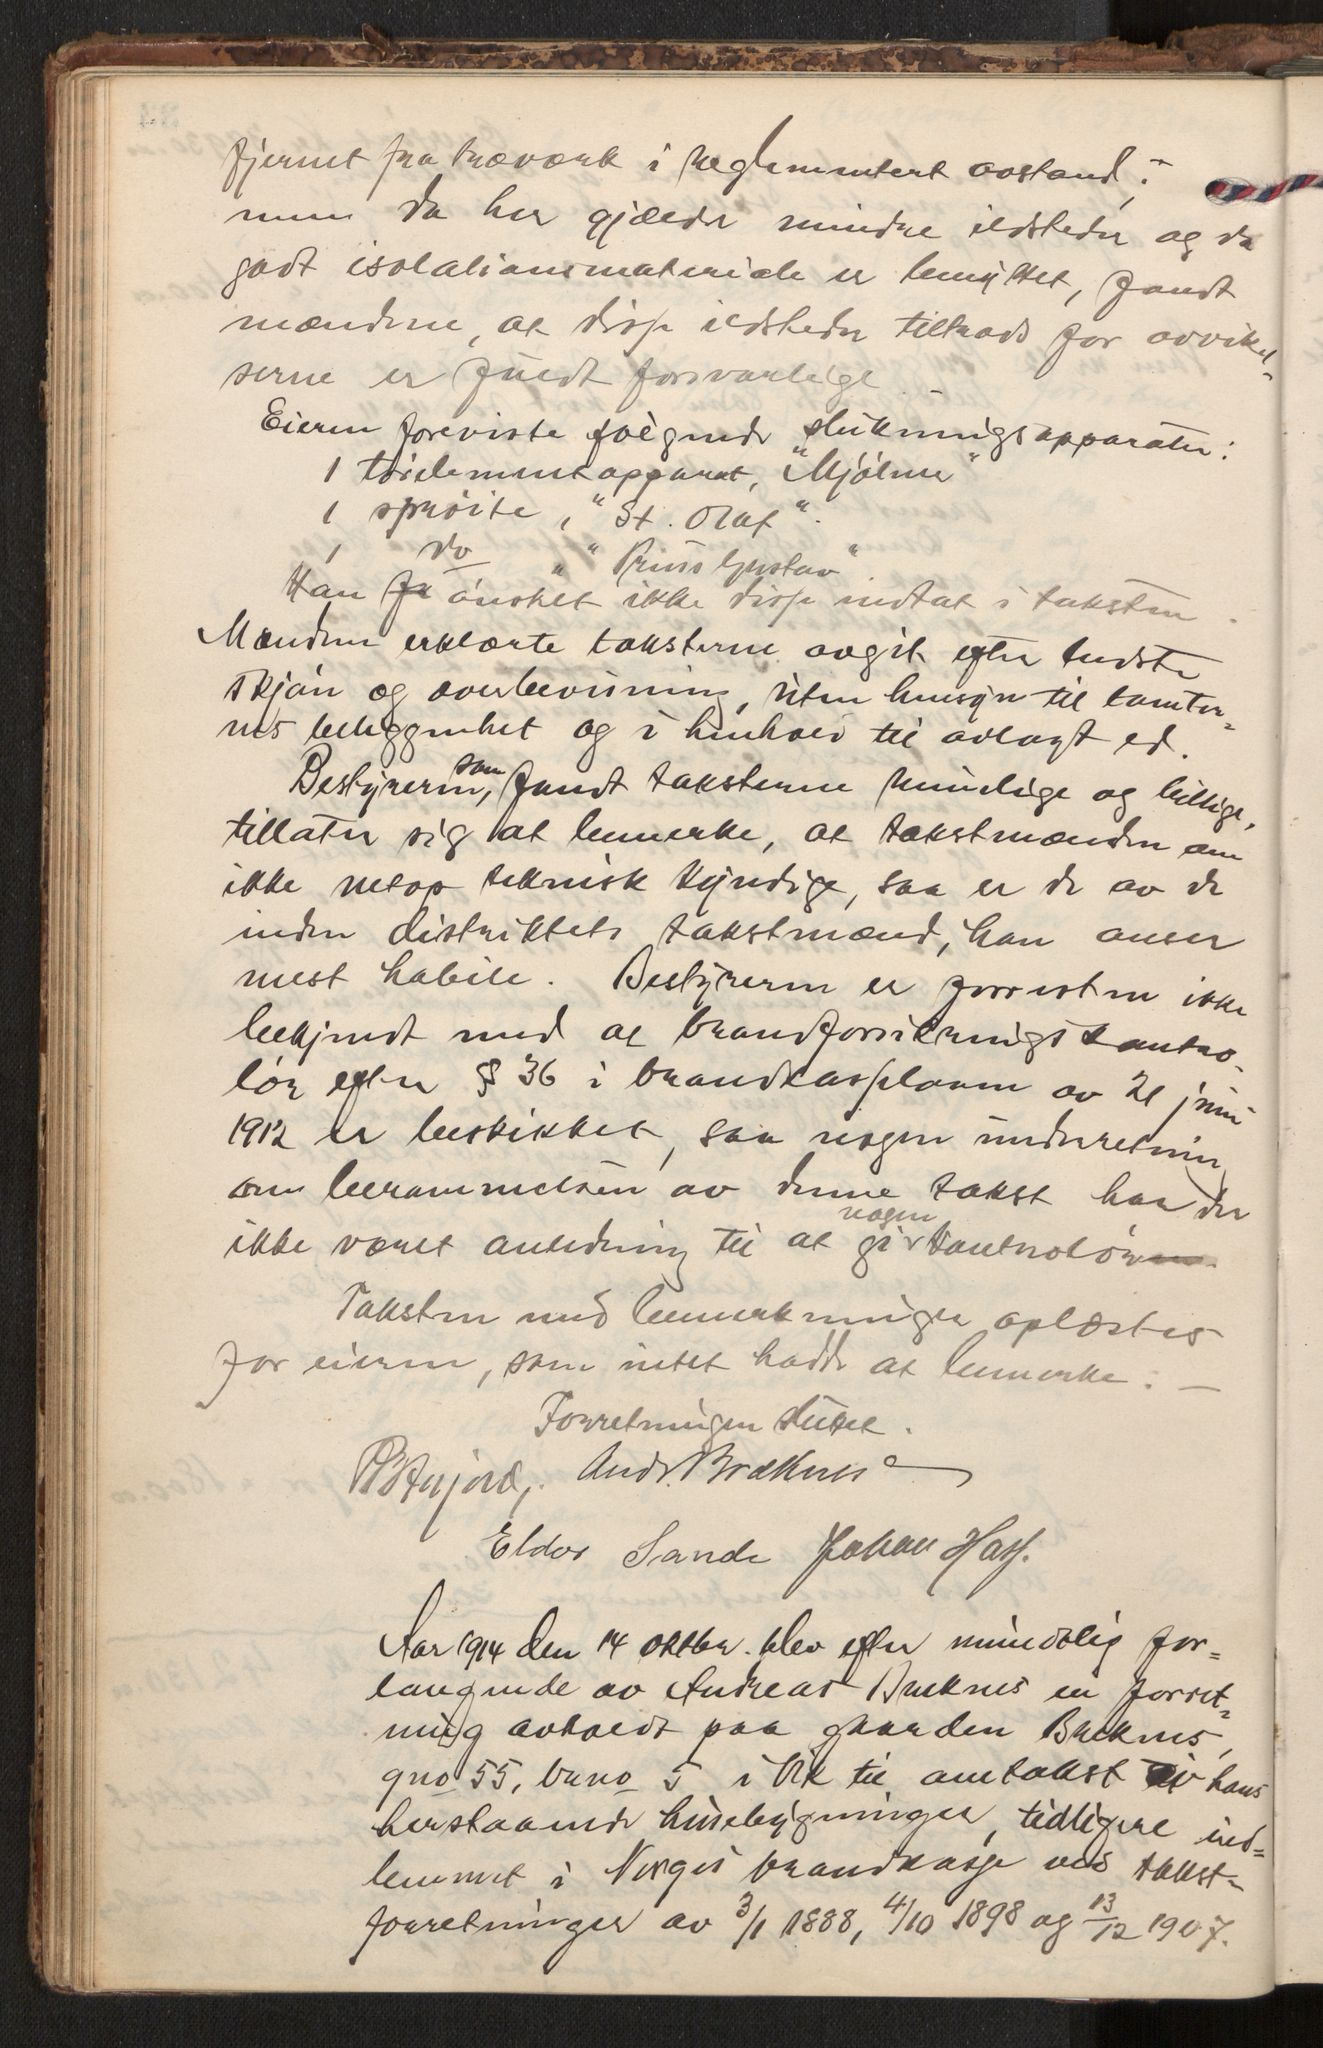 fjernet fra træværk i reglementert avstand;
men da her gjælder mindre ildsteder og da
godt isolationsmateriale er benyttet, fandt
mændene, at disse ildsteder tiltrods for avvikel-
serne er fuldt forsvarlige.
Eieren foreviste følgende slukningsapparater:
1 tørelementapparat, "Mjølner"
1 sprøite, "St. Olaf".
1 do " "Prins Gustav".
Han ønsket ikke disse indtat i taksten.
Mændene erklærte taksterne avgit efter bedste
skjøn og overbevisning, uten hensyn til tomter-
nes beliggenhet og i henhold til avlagt ed.
Bestyreren, som fandt taksterne rimelige og billige,
tillater sig at bemerke, at takstmændene om
ikke netop teknisk kyndige, saa er de av de
inden distriktets takstmænd, han anser
mest habile. Bestyreren er forresten ikke
bekjendt med at brandforsikringskontro-
lør efter § 36 i brandkasseloven av 21 juni
1912 er beskikket, saa nogen underretning
om berammelsen av denne takst har der
ikke været anledning til at gi nogen kontrolør.
Taksten med bemerkninger oplæstes
for eieren, som intet hadde at bemerke. —
Forretningen sluttet.
Andr. Bræknes
Eldor Sande Johan Hass.
Aar 1914 den 14 oktbr. blev efter mundtlig for-
langende av Andreas Breknes en forret-
ning avholdt paa gaarden Breknes,
gno 55, bruno 5 i Vik til omtakst av hans
herstaaende husebygninger, tidligere ind-
lemmet i Norges brandkasse ved takst-
forretninger av 3/1 1888, 4/10 1898 og 13/12 1907.